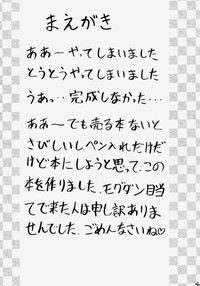 まえがき
ああーやってしまいました
とうとうやってしまいました
うあっ‥完成しなかった…
ああーでも売る本ないと
さびしいしペン入れだけだ
けど本にしようと思って、この
本を作りました、モグダン目当
てで来た人は申し訳ありま
せんでした、ごめんなさいね♡